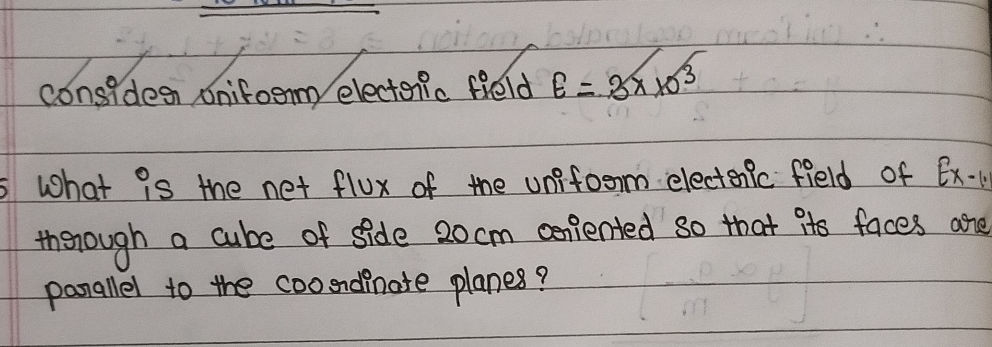 consider uniform electric field E = 3x10³
5 What is the net flux of the uniform electric field of Ex-1.1
through a cube of side 20cm oriented so that its faces are
parallel to the coordinate planes?